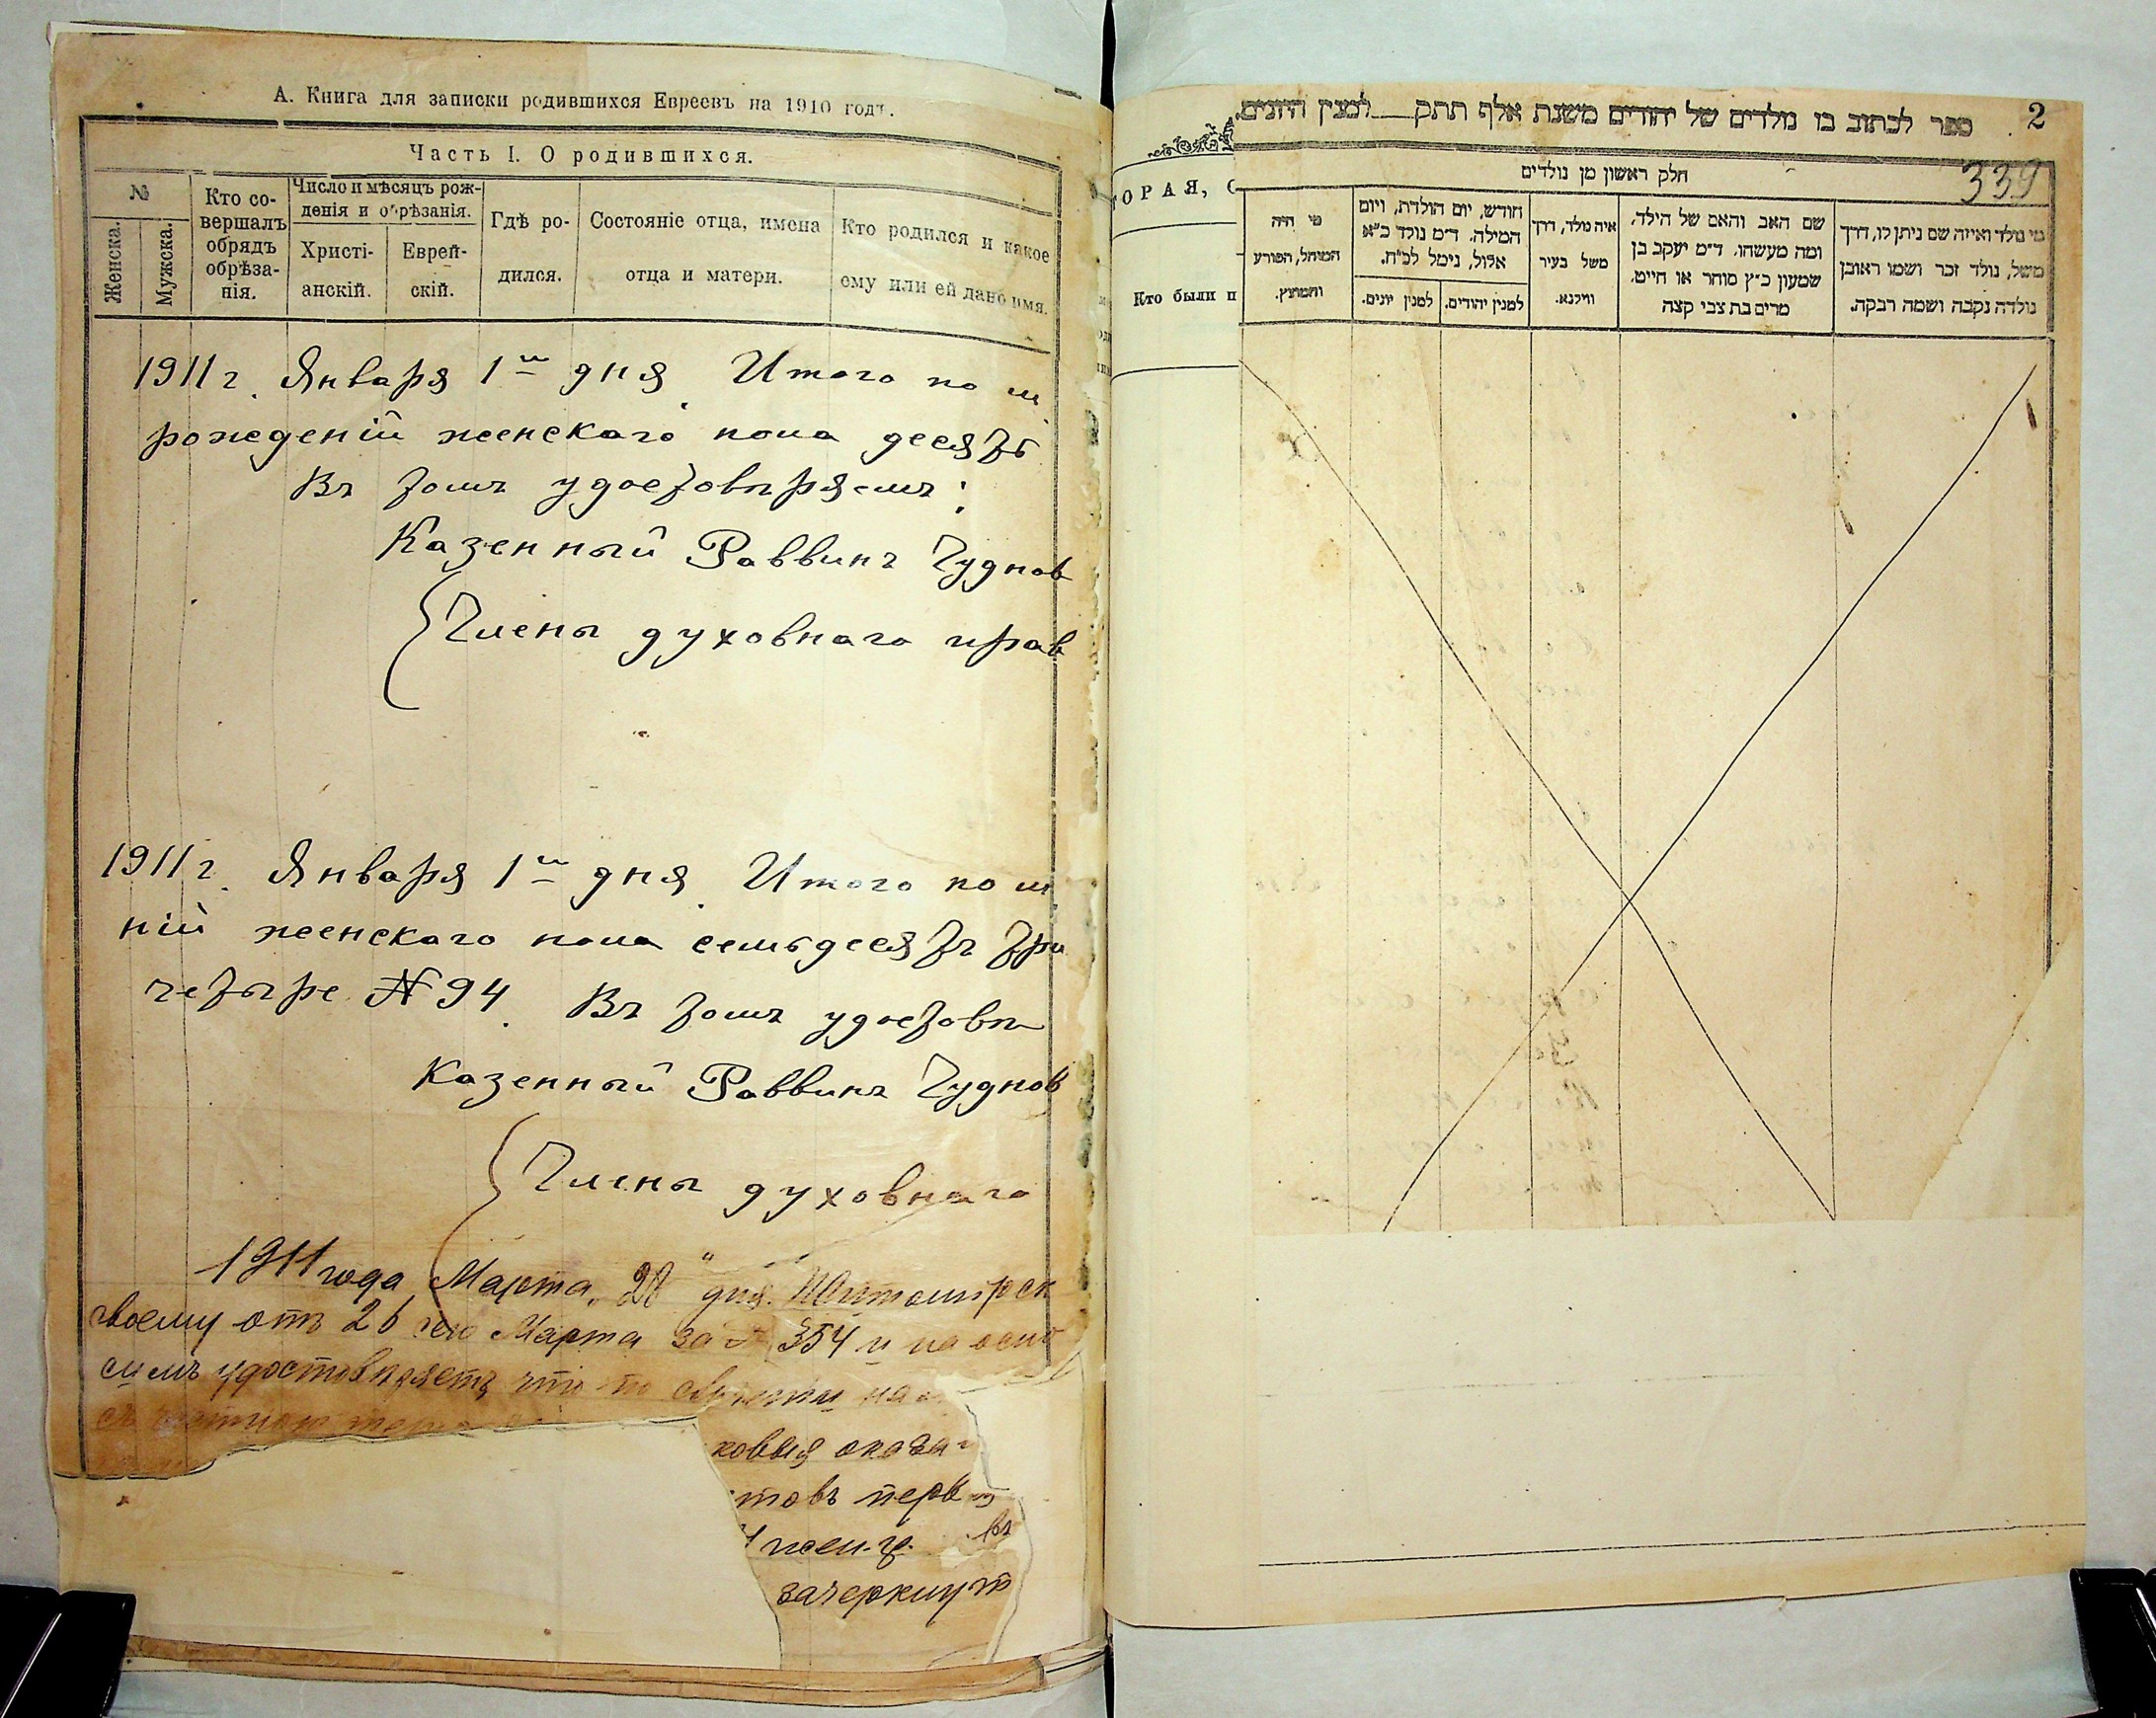 А. Книга для записки родившихся Евреевъ на 1910 годъ.
Часть I. О родившихся.
№
Женска.
Мужска.
Кто со-
вершалъ
обрядъ
обрѣза-
нія.
Число и мѣсяцъ рож-
денія и обрѣзанія.
Христі-
анскій.
Еврей-
скій.
Гдѣ ро-
дился.
Состояніе отца, имена
отца и матери.
Кто родился и какое
ему или ей дано имя.
1911 г. Января 1го дня. Итого по м
рожденій женскаго пола десять
Въ томъ удостовѣряемъ:
Казенный Раввинъ Чуднов
Члены духовнаго прав
1911 г. Января 1го дня. Итого по м
ній женскаго пола семьдесятъ три
четыре № 94. Въ томъ удостовѣ
Казенный Раввинъ Чуднов
Члены духовнаго
1911 года Марта „28" дня. Житомірск
своему отъ 26 сего Марта за № 354 и на осно
симъ удостовѣряетъ что по
ковыя оказа
товъ перв
4 женщ. въ
зачеркнут
ספר לכתוב בו נולדים של יהודים משנת אלף תתק למנין היונים.
2
339
חלק ראשון מן נולדים
מי נולד ואיזה שם ניתן לו, דרך
משל, נולד זכר ושמו ראובן
נולדה נקבה ושמה רבקה.
שם האב והאם של הילד,
ומה מעשהו. ד״מ יעקב בן
שמעון כ״ץ סוחר או חייט.
מרים בת צבי קצה
איה נולד, דרך
משל בעיר
ווילנא.
חודש, יום הולדת, ויום
המילה. ד״מ נולד כ״א
אלול, נימל לכ״ח.
למנין יהודים.
למנין יונים.
מי היה
המוהל, הפורע
והמוצץ.
ТОРАЯ, О
Кто были п